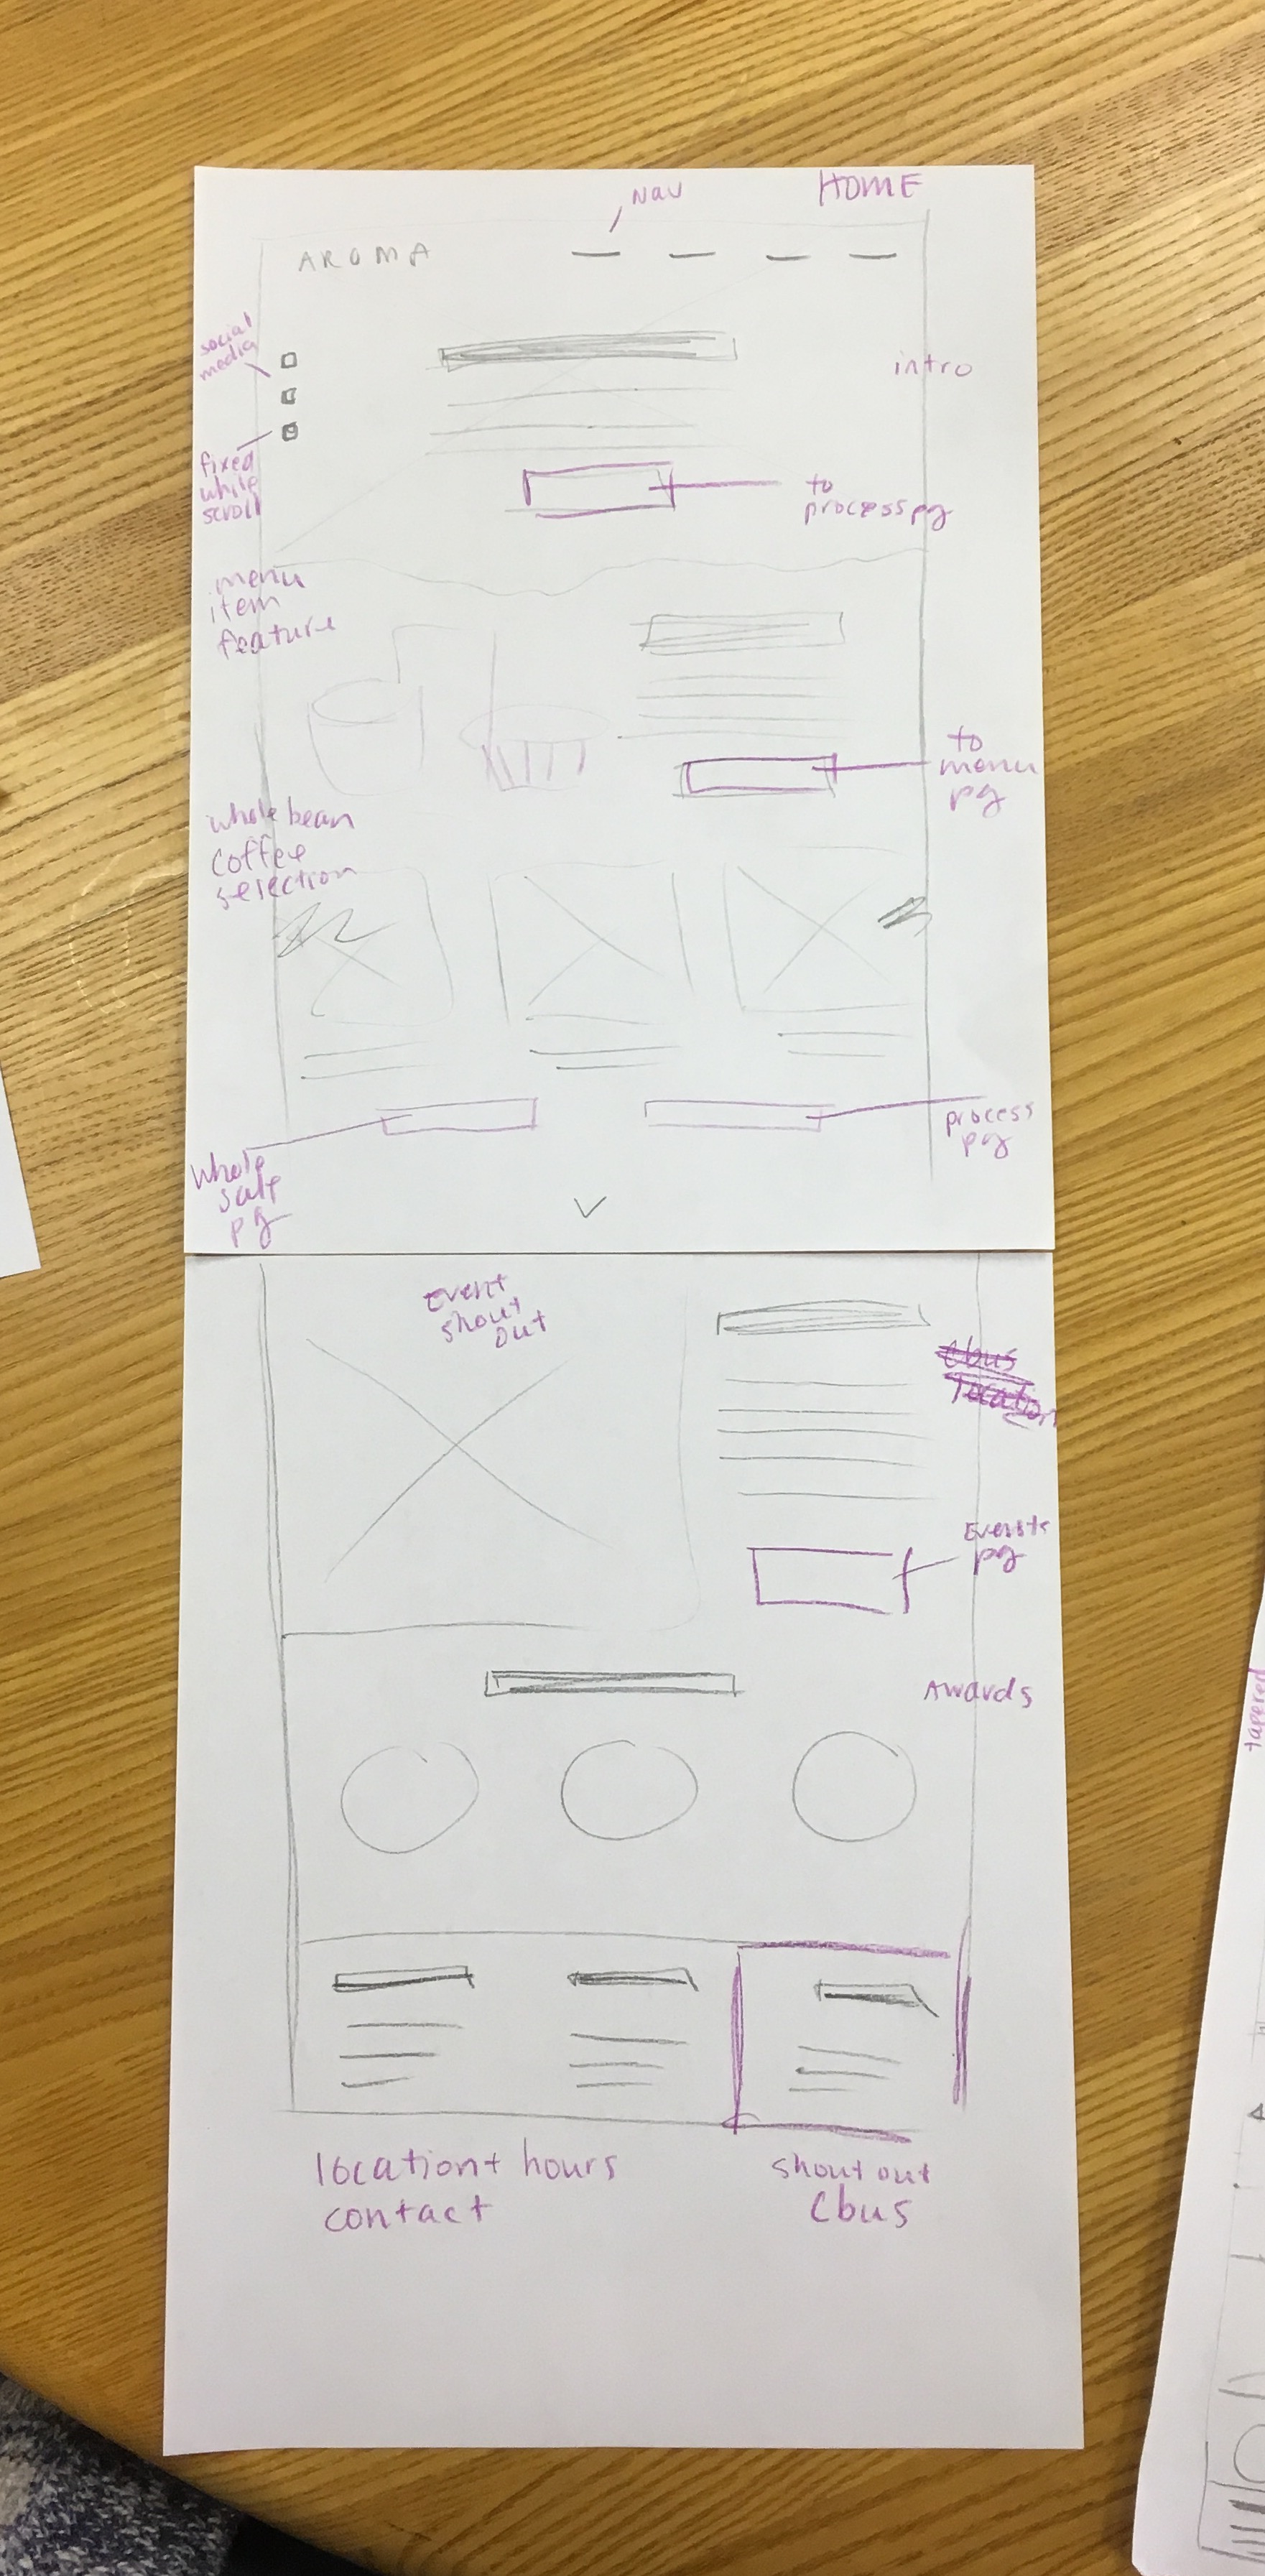 Nav
HOME
AROMA
social
media
intro
fixed
while
scroll
to
process pg
menu
item
feature
to
menu
pg
whole bean
coffee
selection
process
pg
Whole
sale
pg
Event
shout
out
cbus
location
Events
pg
Awards
tapered
location + hours
contact
shout out
Cbus